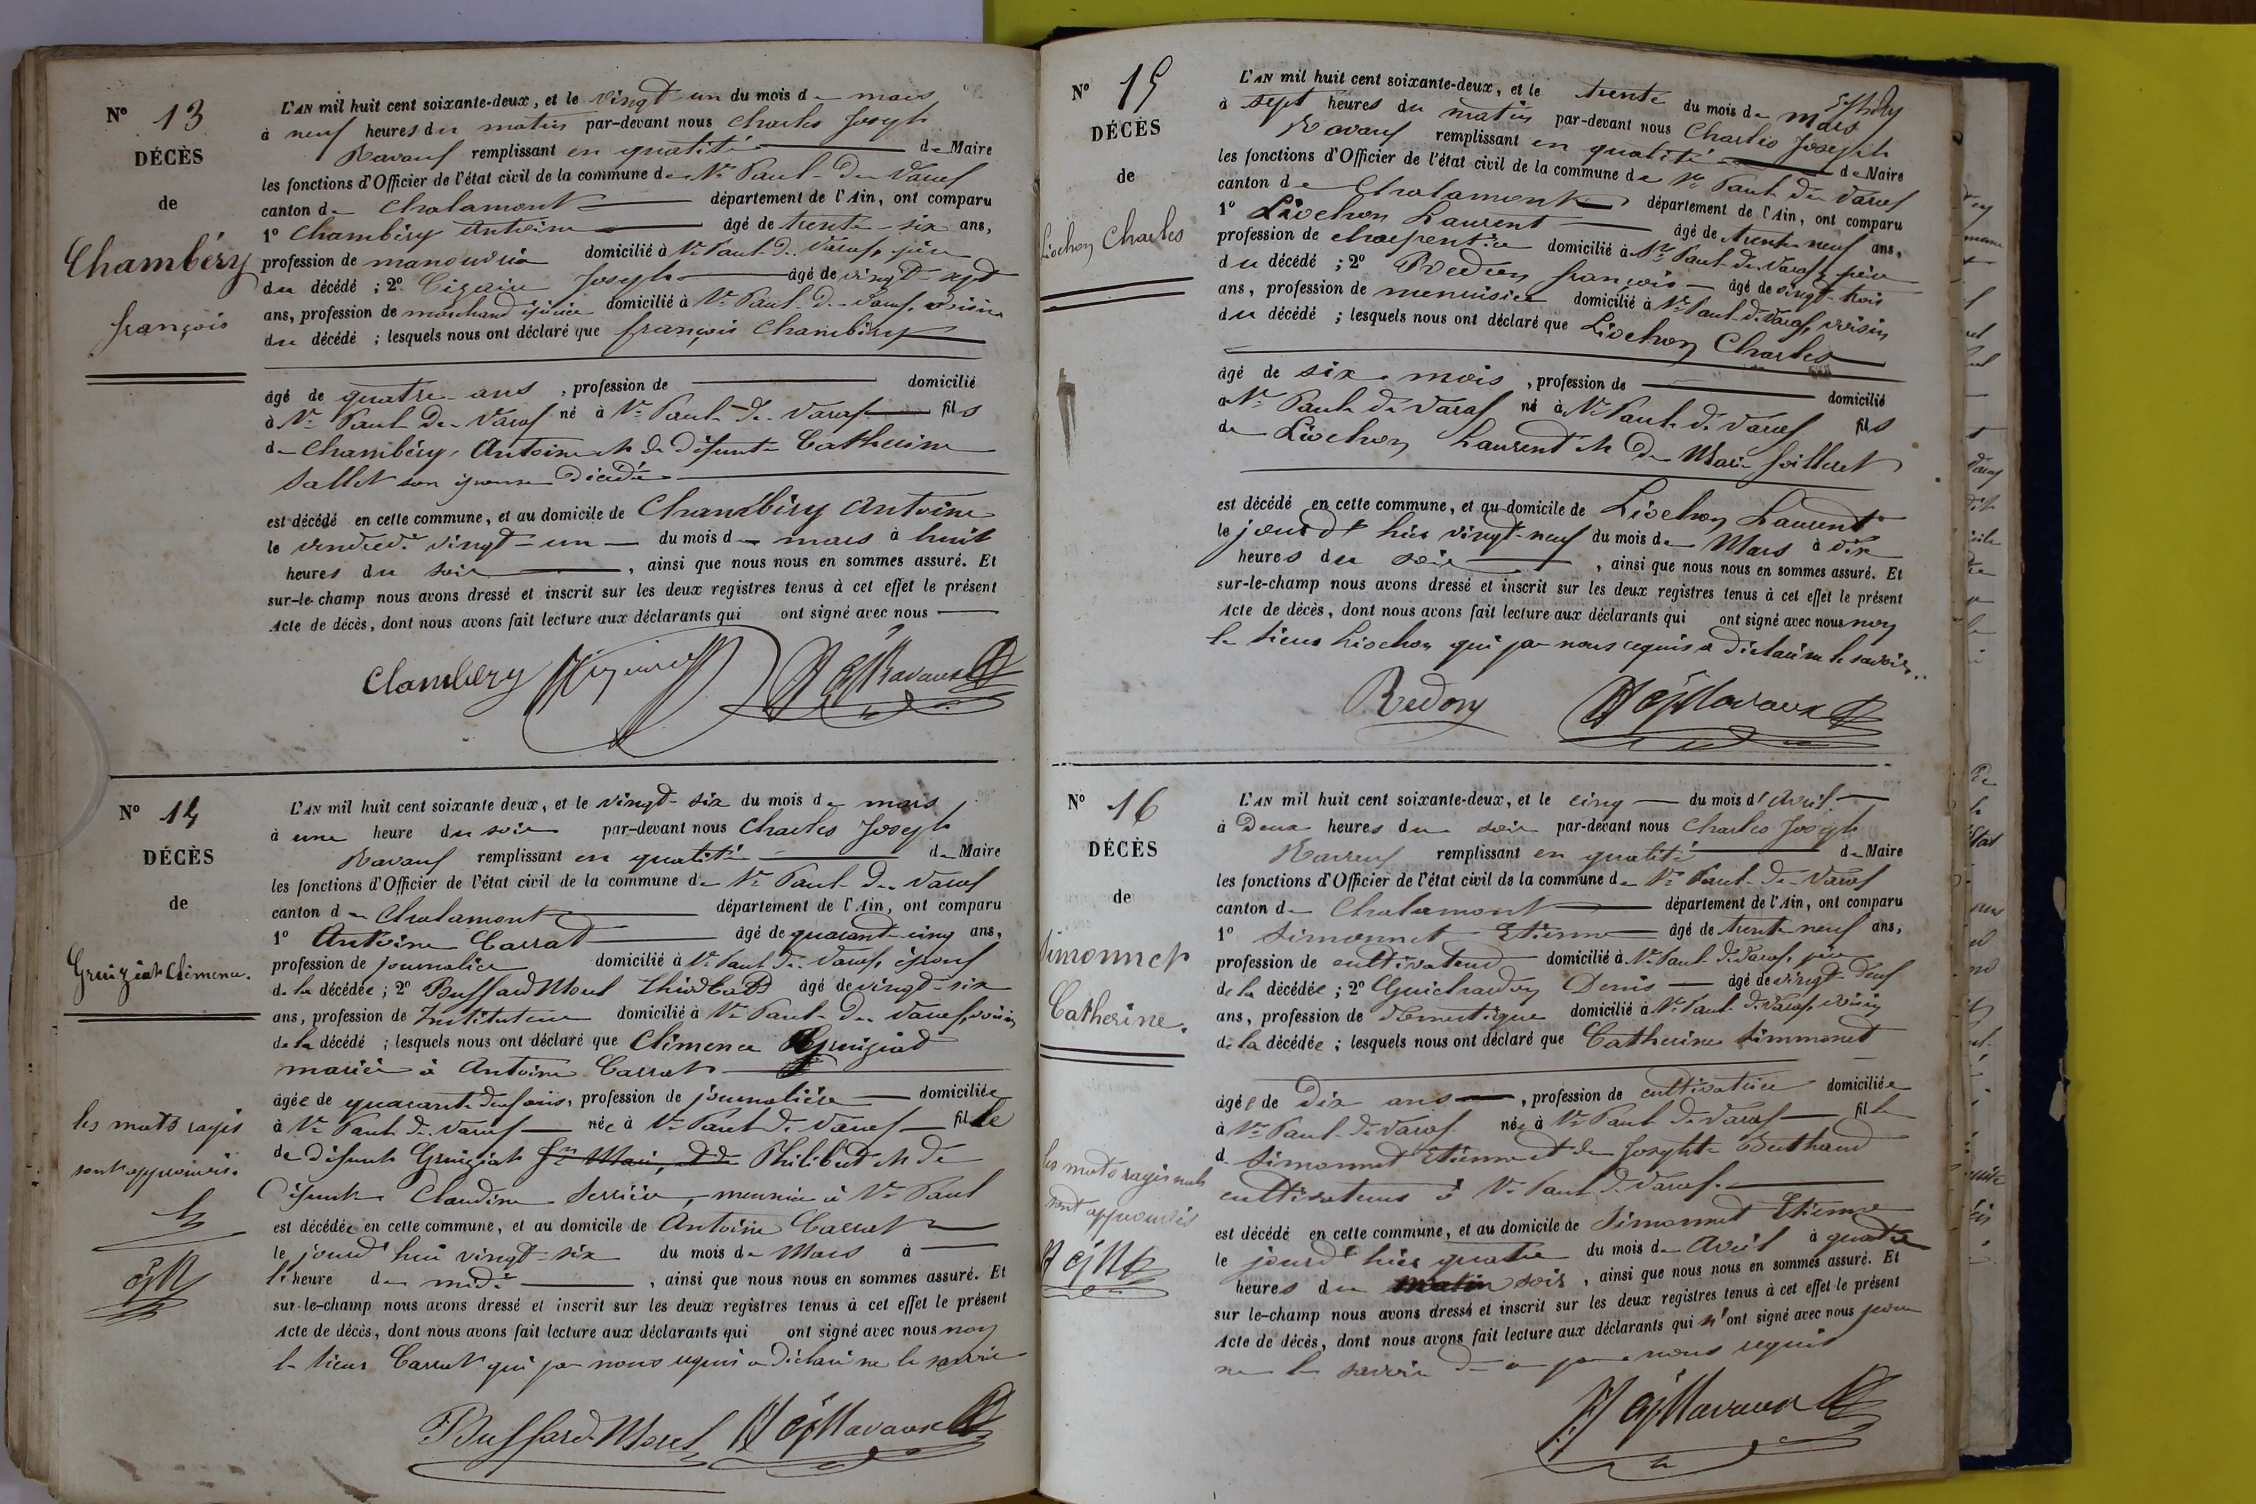 N° 13
DÉCÈS
de
Chambéry
françois
L'AN mil huit cent soixante-deux, et le vingt un du mois de mars
à neuf heures du matin par-devant nous Charles Joseph
Ravaux remplissant en qualité de Maire
les fonctions d'Officier de l'état civil de la commune de St Paul de Varax
canton de Chalamont département de l'Ain, ont comparu
1° Chambéry Antoine âgé de trente-six ans,
profession de manouvrier domicilié à St Paul de Varax, père
du décédé ; 2° Joseph âgé de vingt sept
ans, profession de marchand épicier domicilié à St Paul de Varax, voisin
du décédé ; lesquels nous ont déclaré que françois Chambéry
âgé de quatre ans, profession de domicilié
à St Paul de Varax né à St Paul-de-Varax fils
de Chambéry, Antoine et de défunte Catherine
Sallet son épouse décédée
est décédé en cette commune, et au domicile de Chambéry Antoine
le vendredi vingt-un du mois de mars à huit
heures du soir, ainsi que nous nous en sommes assuré. Et
sur-le-champ nous avons dressé et inscrit sur les deux registres tenus à cet effet le présent
Acte de décès, dont nous avons fait lecture aux déclarants qui ont signé avec nous
Chambéry Ravaux
N° 14
DÉCÈS
de
Gruiziat Clémence.
les mots rayés
sont approuvés.
L'AN mil huit cent soixante deux, et le vingt-six du mois de mars
à une heure du soir par-devant nous Charles Joseph
Ravaux remplissant en qualité de Maire
les fonctions d'Officier de l'état civil de la commune de St Paul de Varax
canton de Chalamont département de l'Ain, ont comparu
1° Antoine Carrat âgé de quarante cinq ans,
profession de journalier domicilié à St Paul de Varax, époux
de la décédée ; 2° Buffard Morel âgé de vingt-six
ans, profession de Instituteur domicilié à St Paul de Varax, voisin
de la décédé ; lesquels nous ont déclaré que Clémence Gruiziat
mariée à Antoine Carrat
âgée de quarante deux ans, profession de journalière domiciliée
à St Paul de Varax née à St Paul de Varax fille
de défunt Gruiziat Philibert et de
défunte Claudine meunier à St Paul
est décédée en cette commune, et au domicile de Antoine Carrat
le jourd'hui vingt-six du mois de Mars à
l'heure de midi, ainsi que nous nous en sommes assuré. Et
sur-le-champ nous avons dressé et inscrit sur les deux registres tenus à cet effet le présent
Acte de décès, dont nous avons fait lecture aux déclarants qui ont signé avec nous non
le sieur Carrat qui par nous requis a déclaré ne le savoir
Buffard-Morel Ravaux
N° 15
DÉCÈS
de
Liochon Charles
L'AN mil huit cent soixante-deux, et le trente du mois de mars
à sept heures du matin par-devant nous Charles Joseph
Ravaux remplissant en qualité de Maire
les fonctions d'Officier de l'état civil de la commune de St Paul de Varax
canton de Chalamont, département de l'Ain, ont comparu
1° Liochon Laurent âgé de trente neuf ans,
profession de charpentier domicilié à St Paul de Varax, père
du décédé ; 2° Redon françois âgé de vingt-trois
ans, profession de menuisier domicilié à St Paul de Varax, voisin
du décédé ; lesquels nous ont déclaré que Liochon Charles
âgé de six mois, profession de domicilié
à St Paul de Varax né à St Paul de Varax fils
de Liochon Laurent et de Marie
est décédé en cette commune, et au domicile de Liochon Laurent
le jour d'hier vingt-neuf du mois de Mars à dix
heures du soir, ainsi que nous nous en sommes assuré. Et
sur-le-champ nous avons dressé et inscrit sur les deux registres tenus à cet effet le présent
Acte de décès, dont nous avons fait lecture aux déclarants qui ont signé avec nous non
le sieur Liochon qui par nous requis a déclaré ne le savoir..
Redon Ravaux
N° 16
DÉCÈS
de
Simonnet
Catherine.
les mots rayés nuls
sont approuvés
L'AN mil huit cent soixante-deux, et le cinq du mois d'Avril
à Deux heures du soir par-devant nous Charles Joseph
Ravaux remplissant en qualité de Maire
les fonctions d'Officier de l'état civil de la commune de St Paul de Varax
canton de Chalamont département de l'Ain, ont comparu
1° Simonnet Etienne âgé de trente neuf ans,
profession de cultivateur domicilié à St Paul de Varax, père
de la décédée ; 2° Guichardon Denis âgé de vingt-deux
ans, profession de domestique domicilié à St Paul de Varax, voisin
de la décédée ; lesquels nous ont déclaré que Catherine Simmonet
âgée de Dix ans, profession de cultivatrice domiciliée
à St Paul de Varax née à St Paul de Varax fille
de Simonnet Etienne et de Josephte Berthaud
cultivateurs à St Paul de Varax.
est décédé en cette commune, et au domicile de Simonnet Etienne
le jourd'hier quatre du mois de Avril à quatre
heures du matin soir, ainsi que nous nous en sommes assuré. Et
sur le-champ nous avons dressé et inscrit sur les deux registres tenus à cet effet le présent
Acte de décès, dont nous avons fait lecture aux déclarants qui n'ont signé avec nous pour
ne le savoir de ce par nous requis
Ravaux